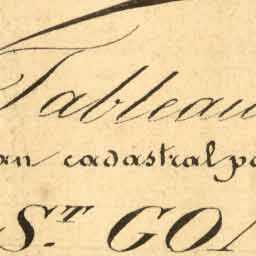 Tableau
an cadastral pa
ST. GO